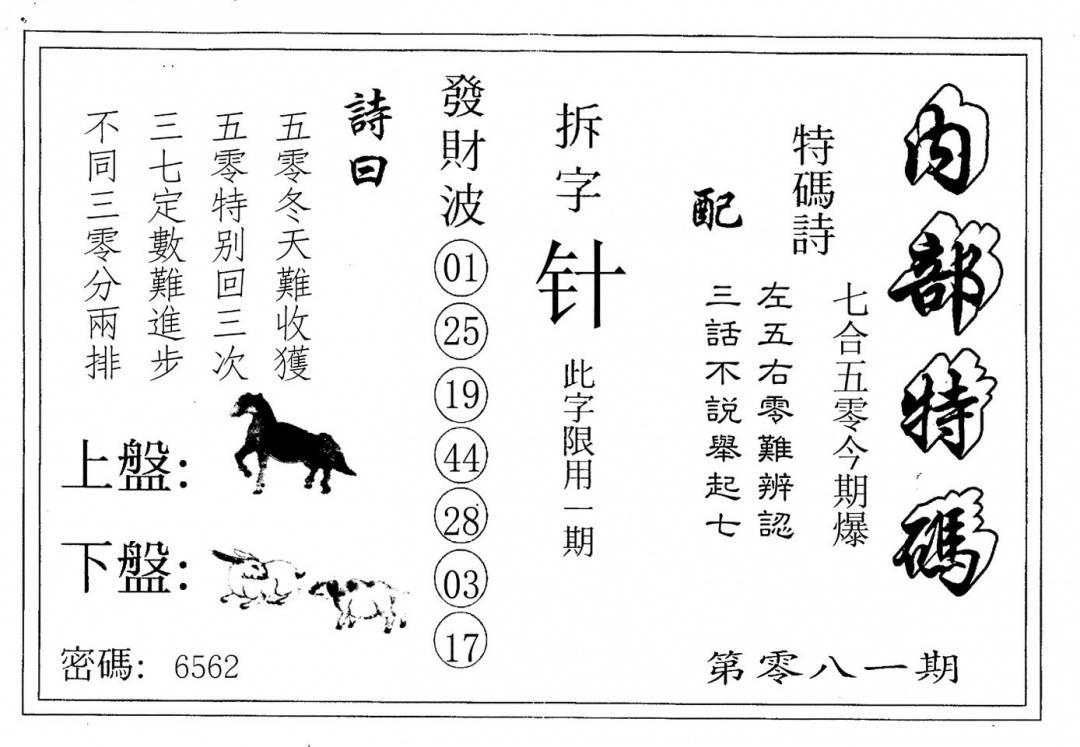 内部特碼
特碼詩
七合五零今期爆
配
左五右零難辨認
三話不説舉起七
第零八一期
拆字
针
此字限用一期
發財波
01
25
19
44
28
03
17
詩曰
五零冬天難收獲
五零特别回三次
三七定數難進步
不同三零分兩排
上盤：
下盤：
密碼： 6562